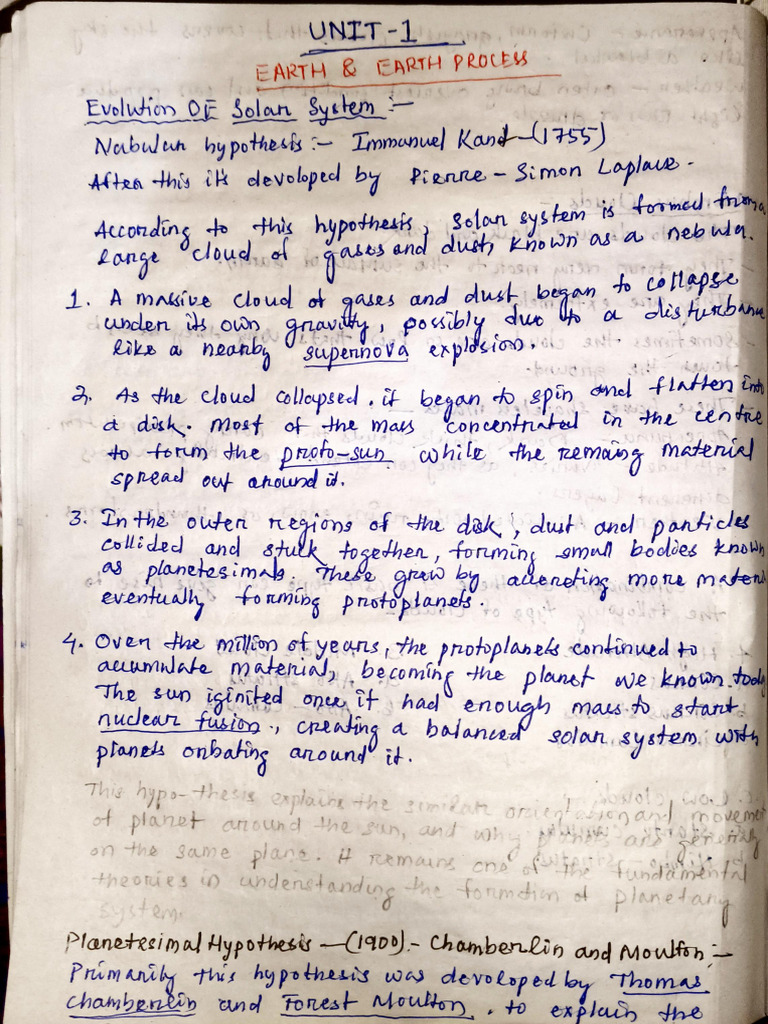 UNIT-1
EARTH & EARTH PROCESS
Evolution OF Solar System :-
Nabular hypothesis :- Immanuel Kant - (1755)
After this it's devoloped by Pierre - Simon Laplace -
According to this hypothesis, Solar system is formed from a
large cloud of gases and dust, known as a nebula.
1. A massive cloud of gases and dust began to collapse
under its own gravity, possibly due to a disturbance
like a nearby supernova explosion.
2. As the cloud collapsed, it began to spin and flatten into
a disk. Most of the mass concentrated in the centre
to form the proto-sun while the remaing material
spread out around it.
3. In the outer regions of the disk, dust and particles
collided and stuck together, forming small bodies known
as planetesimals. These grew by accreting more materi
eventually forming protoplanets.
4. Over the million of years, the protoplanets continued to
accumulate material, becoming the planet we known today
The sun iginited once it had enough mass to start
nuclear fusion, creating a balanced solar system with
planets orbating around it.
This hypo-thesis explains the similar orientation and movement
of planet around the sun, and why planets are generally
on the same plane. It remains one of the fundamental
theories in understanding the formation of planetary
system.
Planetesimal Hypothesis - (1900) - Chamberlin and Moulton :-
Primarily this hypothesis was devoloped by Thomas
Chamberlin and Forest Moulton. to explain the